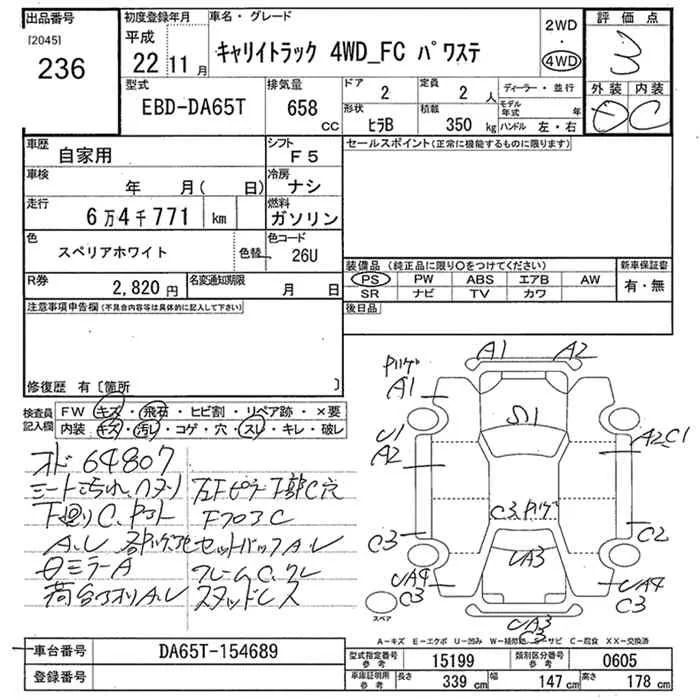 出品番号
[2045]
236
初度登録年月
平成
22 11 月
車名・グレード
キャリイトラック 4WD_FC パワステ
2WD
・
4WD
評価点
3
外装 内装
C
型式
EBD-DA65T
排気量
658
cc
ドア
2
定員
2 人
形状
ヒラB
積載
350 kg
ディーラー・並行
モデル年式 年
ハンドル 左・右
車歴
自家用
シフト
F5
車検
年 月( 日)
冷房
ナシ
走行
6万4千771 km
燃料
ガソリン
色
スペリアホワイト
色替
色コード
26U
R券
2,820 円
名変通知期限
月 日
セールスポイント(正常に機能するものに限ります)
装備品(純正品に限り○をつけてください)
PS PW ABS エアB AW
SR ナビ TV カワ
新車保証書
有・無
後日品
注意事項申告欄(不具合内容等は具体的に記入して下さい)
修復歴 有〔箇所 〕
検査員記入欄
FW キズ・飛石・ヒビ割・リペア跡・×要
内装 キズ・汚レ・コゲ・穴・スレ・キレ・破レ
オド 64807
シート汚れ
下廻りC
A.U
ミラーA
荷台
A.U
下部C穴
フロアC
セットバックA.U
フレームC
スタッドレス
A1 A2
A1
S1
U1
A2
A2 C1
C3
C3
C2
UA3
UA4
C3
UA4
C3
UA3
C3
スペア
A－キズ E－エクボ U－凹み W－補修跡 S－サビ C－腐食 XX－交換済
車台番号
DA65T-154689
登録番号
型式指定番号 参考
15199
類別区分番号 参考
0605
車庫証明用 参考
長さ 339 cm
幅 147 cm
高さ 178 cm